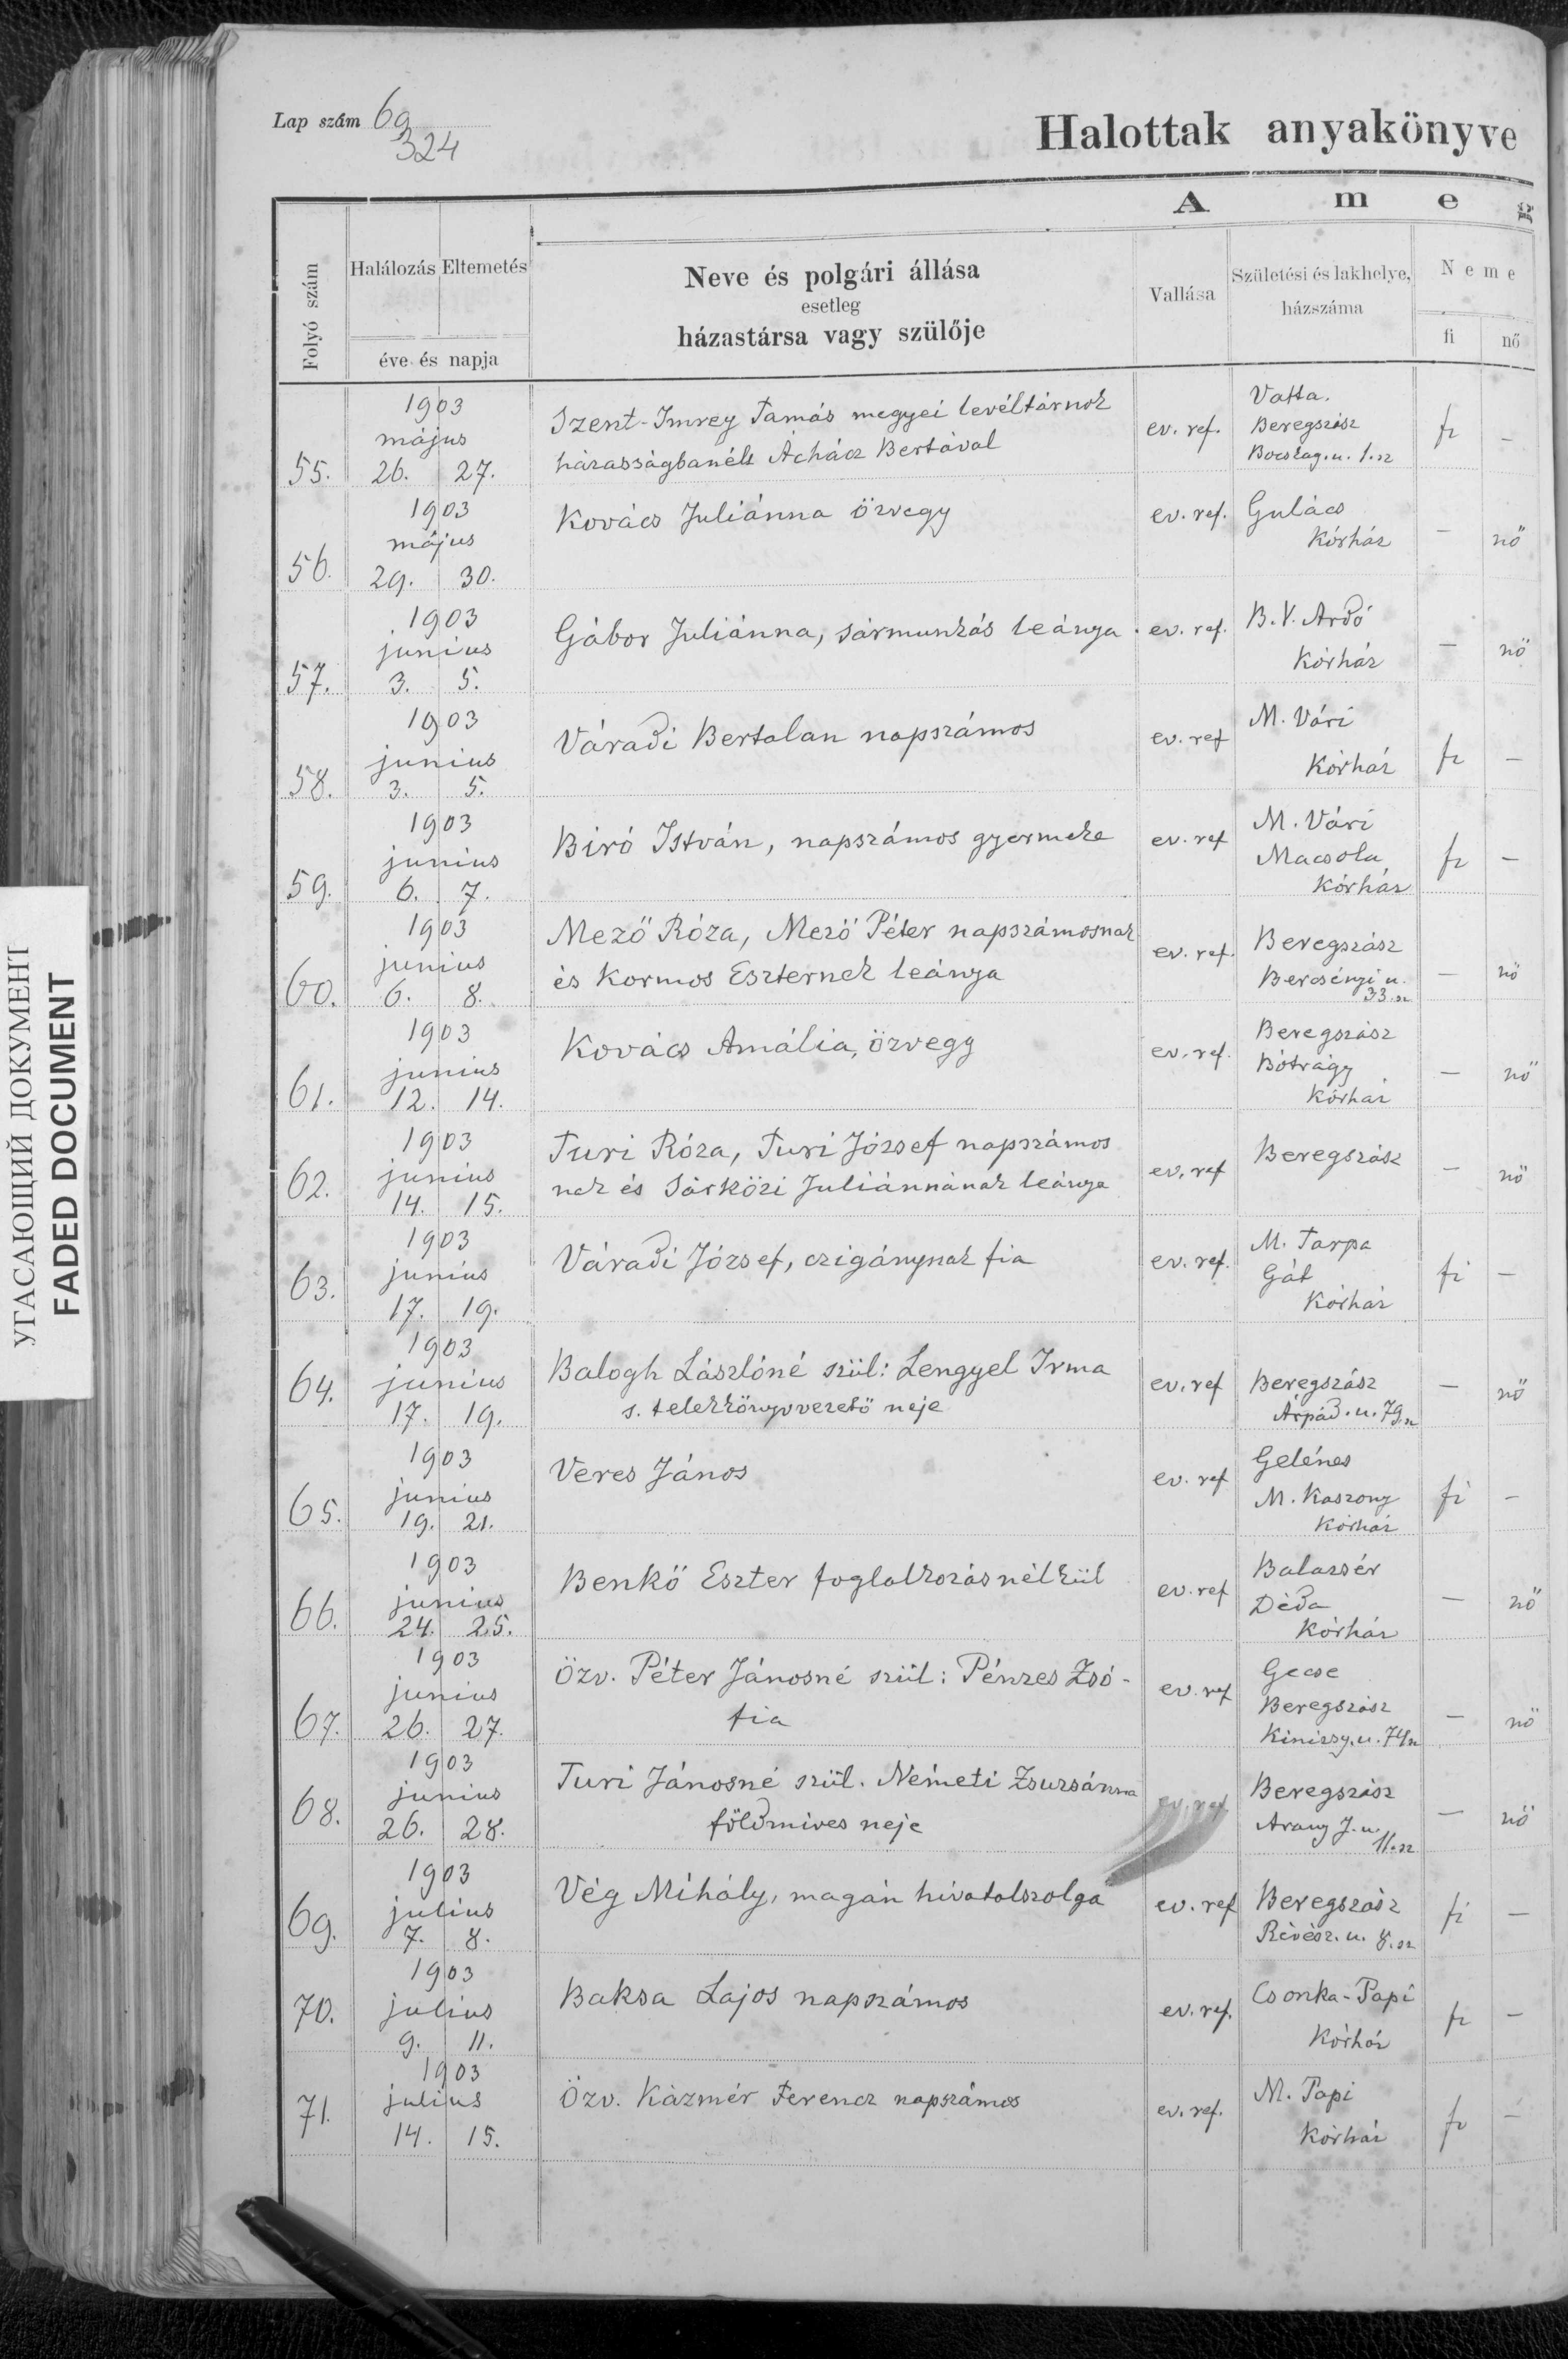 Lap szám 69
324
Halottak anyakönyve
A m e g
Folyó szám
Halálozás Eltemetés
éve és napja
Neve és polgári állása
esetleg
házastársa vagy szülője
Vallása
Születési és lakhelye,
házszáma
Neme
fi nő
55. 1903 május 26. 27.
Szent-Imrey Tamás megyei levéltárnok
házasságbanélt Achácz Bertával
ev. ref.
Vatta.
Beregszász
Bocskay.u. 1.sz
fi –
56. 1903 május 29. 30.
Kovács Juliánna özvegy
ev. ref.
Gulács
Kórház
– nő
57. 1903 junius 3. 5.
Gábor Juliánna, sármunkás leánya.
ev. ref.
B.V. Ardó
Kórház
– nő
58. 1903 junius 3. 5.
Váradi Bertalan napszámos
ev. ref
M. Vári
Kórház
fi –
59. 1903 junius 6. 7.
Biró István, napszámos gyermeke
ev. ref
M. Vári
Macsola
Kórház
fi –
60. 1903 junius 6. 8.
Mező Róza, Mező Péter napszámosnak
és Kormos Eszternek leánya
ev. ref.
Beregszász
Bercsényi u.
33.sz
– nő
61. 1903 junius 12. 14.
Kovács Amália, özvegy
ev. ref.
Beregszász
Bótrágy
Kórház
– nő
62. 1903 junius 14. 15.
Turi Róza, Turi József napszámos
nak és Sárközi Juliánnának leánya
ev. ref
Beregszász
– nő
63. 1903 junius 17. 19.
Váradi József, czigánynak fia
ev. ref.
M. Tarpa
Gát
Kórház
fi –
64. 1903 junius 17. 19.
Balogh Lászlóné szül: Lengyel Irma
s. telekkönyvvezető neje
ev. ref
Beregszász
Árpád.u. 79.sz
– nő
65. 1903 junius 19. 21.
Veres János
ev. ref
Gelénes
M. Kaszony
Kórház
fi –
66. 1903 junius 24. 25.
Benkő Eszter foglalkozásnélkül
ev. ref
Balazsér
Déda
Kórház
– nő
67. 1903 junius 26. 27.
Özv. Péter Jánosné szül: Pénzes Zsó-
fia
ev. ref
Gecse
Beregszász
Kinizsy.u. 74sz
– nő
68. 1903 junius 26. 28.
Turi Jánosné szül. Németi Zsuzsánna
földmives neje
ev. ref
Beregszász
Arany J.u.
11.sz
– nő
69. 1903 julius 7. 8.
Vég Mihály, magán hivatalszolga
ev. ref
Beregszász
Révész.u. 8.sz
fi –
70. 1903 julius 9. 11.
Baksa Lajos napszámos
ev. ref.
Csonka-Papi
Kórház
fi –
71. 1903 julius 14. 15.
Özv. Kázmér Ferencz napszámos
ev. ref.
M. Papi
Kórház
fi –
УГАСАЮЩИЙ ДОКУМЕНТ
FADED DOCUMENT